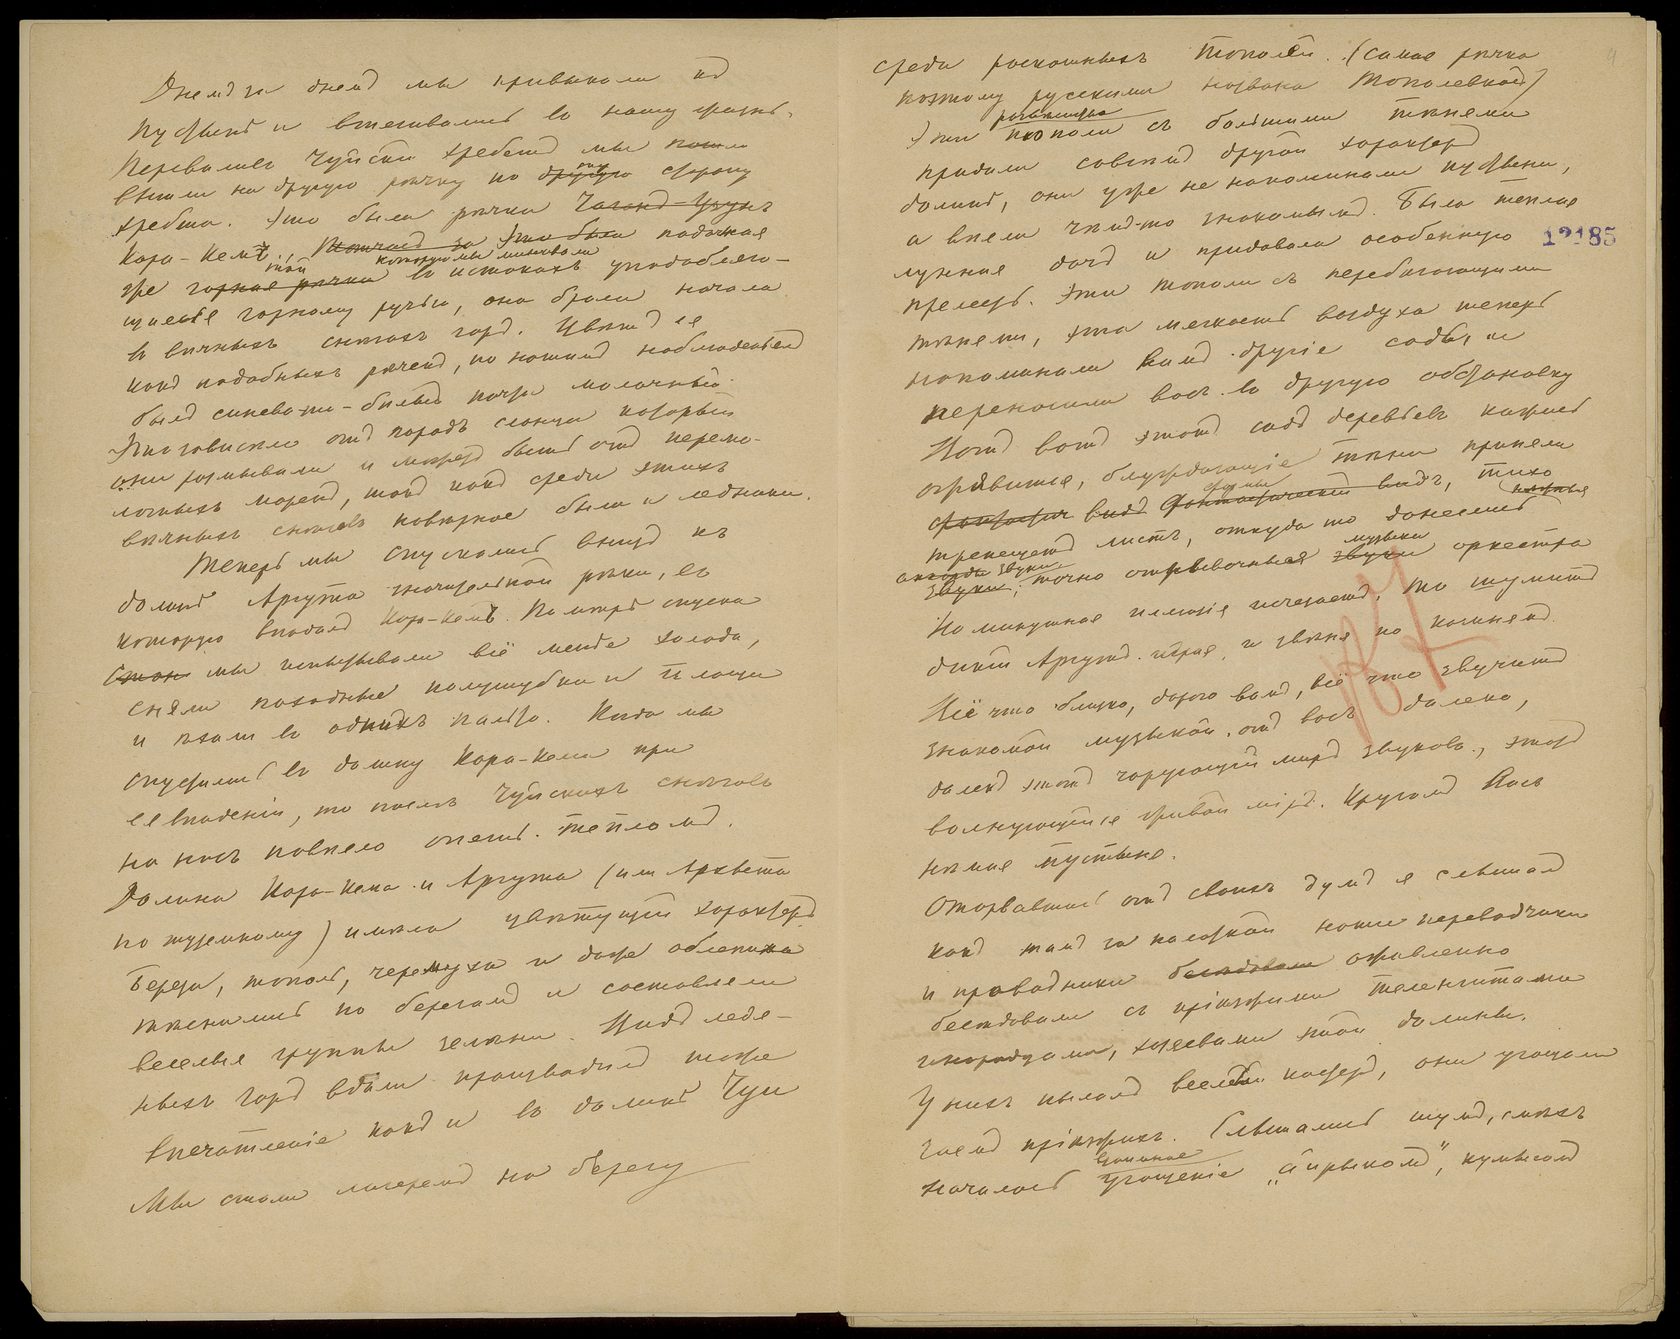 День за днемъ мы привыкали къ
пустынѣ и втягивались въ нашу жизнь.
Переваливъ Чуйскій хребетъ мы пошли
вышли на другую рѣчку по другую сторону
хребта. Это была рѣчка Чаганъ-Узунъ
Кара-Кемъ, это была
же горная рѣчка въ истокахъ уподобляю-
щаяся горному ручью, она брала начало
въ вѣчныхъ снѣгахъ горъ. Цвѣтъ ея
какъ подобныхъ рѣчекъ, по нашимъ наблюденьямъ
былъ синевато-бѣлый почти молочный.
Это зависило отъ породъ сланца который
они размывали и можетъ быть отъ перемо-
лотыхъ моренъ, такъ какъ среди этихъ
вѣчныхъ снѣговъ навѣрное были и ледники.
Теперь мы спускались внизъ къ
долинѣ Аргута значительной рѣки, въ
которую впадалъ Кара-Кемъ. По мѣрѣ спуска
мы испытывали всё менѣе холода,
сняли походные полушубки и плащи
и ѣхали въ однихъ пальто. Когда мы
спустились въ долину Кара-Кема при
ея впаденіи, то послѣ Чуйскихъ снѣговъ
на насъ повѣяло опять тепломъ.
Долина Кара-Кема и Аргута (или Архыта
по туземному) имѣла цвѣтущій характеръ
Береза, тополь, черемуха и даже облепиха
тѣснились по берегамъ и составляли
веселые группы зелени. Видъ ледя-
ныхъ горъ вдали производилъ тоже
впечатленіе какъ и въ долинѣ Чуи
Мы стали лагеремъ на берегу
среди роскошныхъ тополей. (самая рѣчка
поэтому русскими названа Тополевкой)
развѣсистые
Эти тополи съ большими тѣнями
придали совсѣмъ другой характеръ
долинѣ, они уже не напоминали пустыни,
а вѣяли чѣмъ-то знакомымъ. Была теплая
лунная ночь и придавала особенную
12185
прелесть. Эти тополи съ перебѣгающими
тѣнями, эта мягкость воздуха теперь
напоминали вамъ другіе сады, и
переносили васъ въ другую обстановку
Вотъ вотъ этотъ садъ деревьевъ кажись
оживится, блуждающіе тѣни приняли
видъ фантастическій видъ, тихо
трепещетъ листъ, откуда то донеслись
музыки
аккорды звуки
звуки, точно отрывочныя звуки оркестра
Но минутная иллюзія исчезаетъ. То шумитъ
дикій Аргутъ играя и звеня по камнямъ.
Всё что близко, дорого вамъ, всё что звучитъ
знакомой музыкой, отъ васъ далеко,
далекъ этотъ чарующій міръ звуковъ, этотъ
волнующійся живой міръ. Кругомъ васъ
нѣмая пустыня.
Оторвавшись отъ своихъ думъ я слышалъ
какъ тамъ за палаткой наши переводчики
и проводники бесѣдовали оживленно
бесѣдовали съ пріѣзжими теленгитами
инородцами, хозяевами этой долины.
У нихъ пылалъ веселый костеръ, они угощали
чаемъ пріѣзжихъ. Слышались шумъ, смѣхъ
началось угощеніе „айрыкомъ", кумысомъ